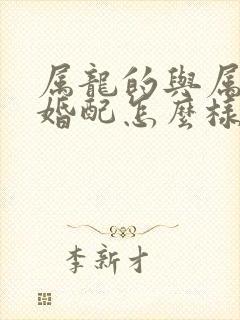 属龍的與属
婚配怎麼樣
李新才